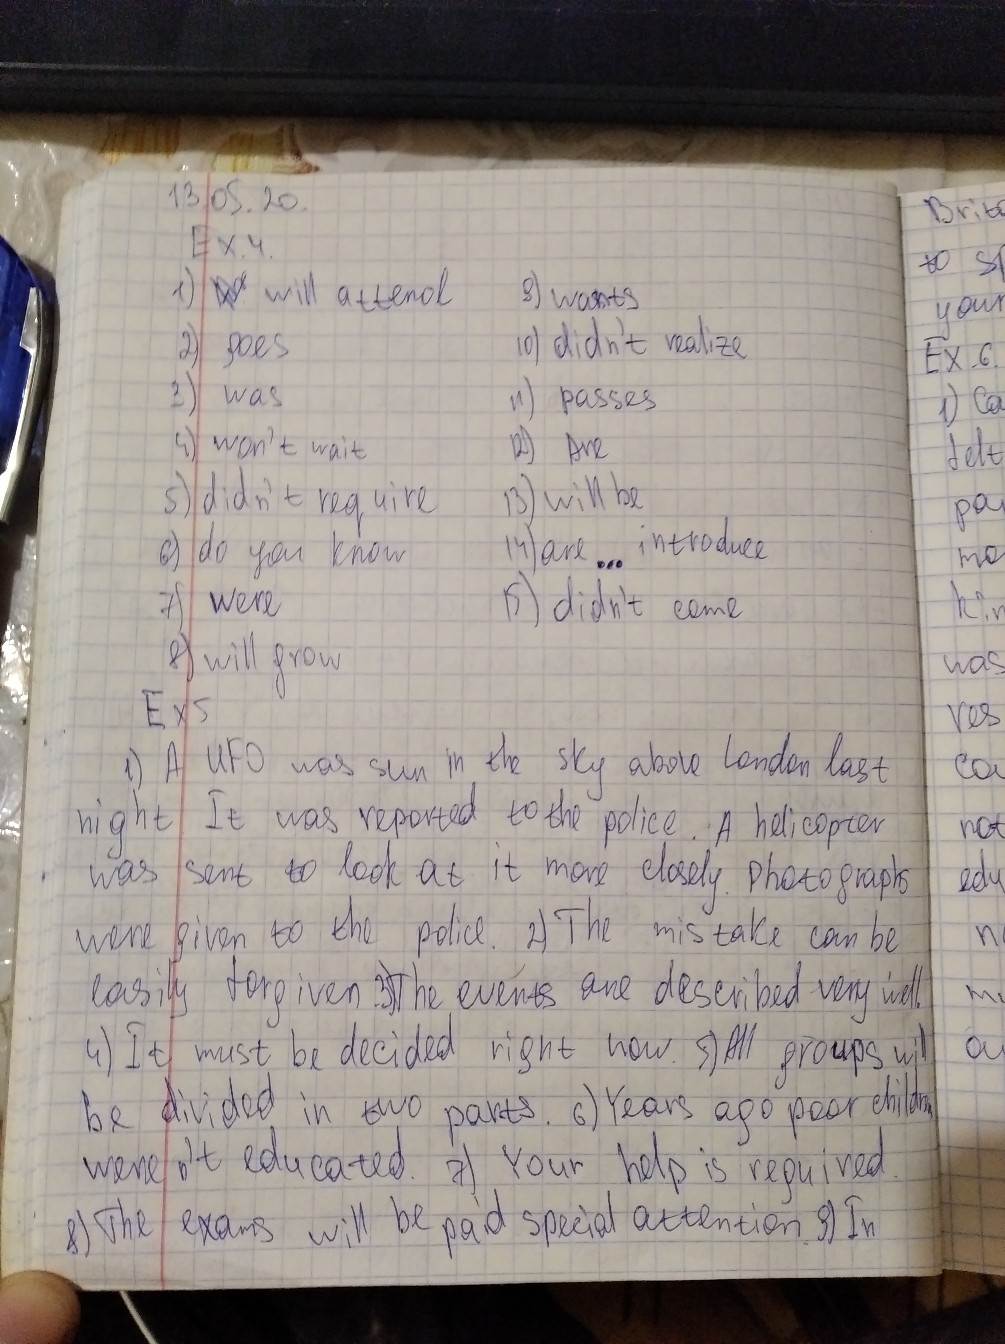 13.05.20.
Ex.4.
1) will attend
2) goes
3) was
4) won't wait
5) didn't require
6) do you know
7) were
8) will grow
9) wants
10) didn't realize
11) passes
12) Are
13) will be
14) are ... introduce
15) didn't come
Ex 5
1) A UFO was sun in the sky above London last
night. It was reported to the police. A helicopter
was sent to look at it more closely. Photographs
were given to the police. 2) The mistake can be
easily forgiven 3) The events are described very well.
4) It must be decided right now. 5) All groups will
be divided in two parts. 6) Years ago poor children
weren't educated. 7) Your help is required.
8) The exams will be paid special attention. 9) In
to
your
Ex.6.
1)
was
not